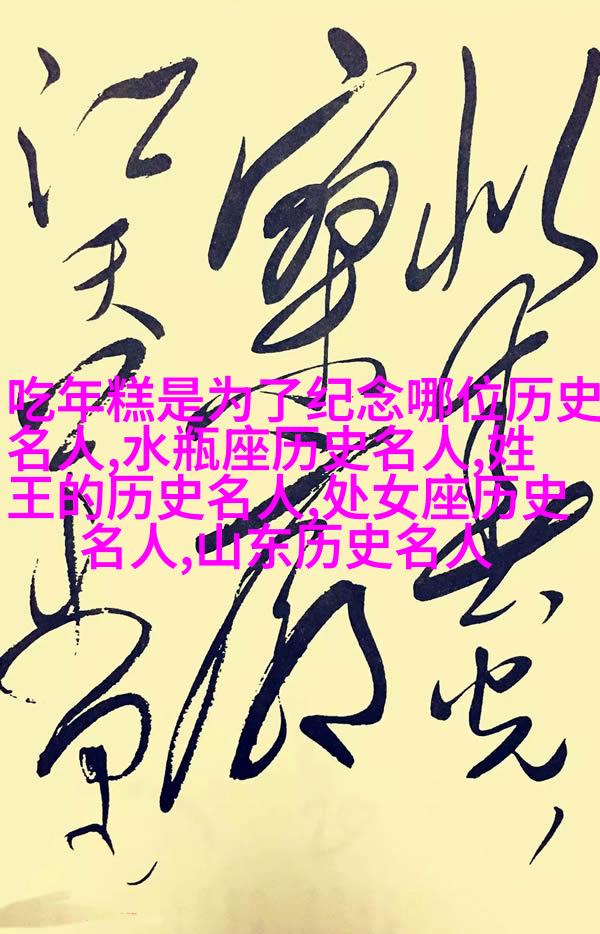 似春光，
寥廓
江天万里霜
吃年糕是为了纪念哪位历史
名人,水瓶座历史名人,姓
王的历史名人,处女座历史
名人,山东历史名人